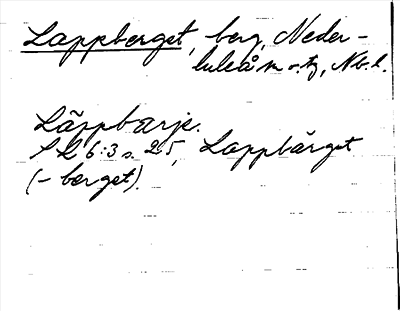 Lappberget, berg, Neder-
luleå sn o. tg, Nb. l.
Läppbærje.
SL 6:3 s. 25, Lappbärget
(-berget).